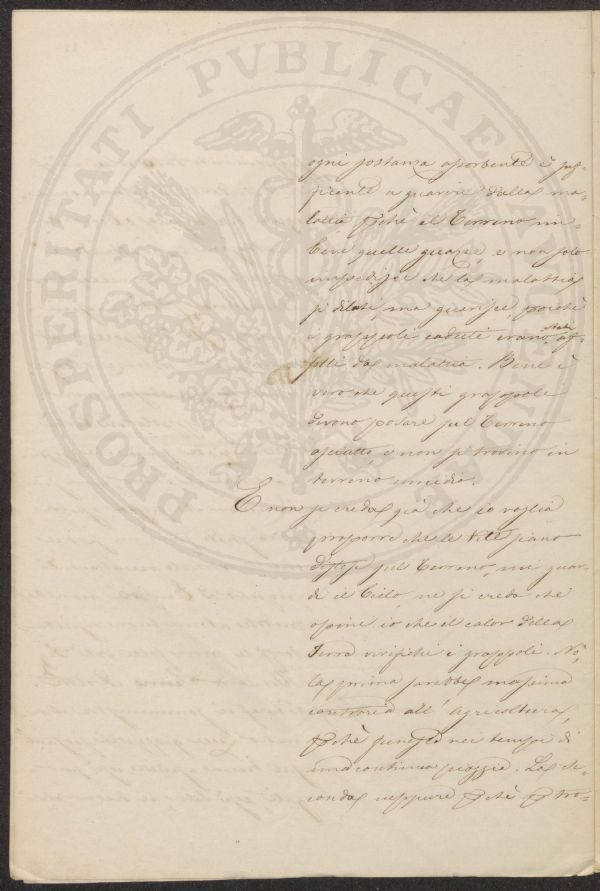 ogni sostanza assorbente è suf-
ficente a guarire dalla ma-
lattia pchè il Terreno im-
beve quelle
e non solo
impedisce che la malattia
si dilati, ma guarisce, poichè
i grappoli caduti erano stati af-
fetti da malattia. Bene è
vero che questi grappoli
devono posare sul Terreno
asciutto, e non si trovino in
terreno umido.
E non si creda già che io voglia
proporre che le Viti siano
distese sul Terreno, mi guar-
di il Cielo, ne si creda che
opini io che il calor della
Terra vivifichi i grappoli. No,
la prima sarebbe massima
contraria all' Agricoltura,
pchè funesta nei tempi di
una continua pioggia. La se-
conda neppure pchè p tro-
PROSPERITATI PVBLICAE